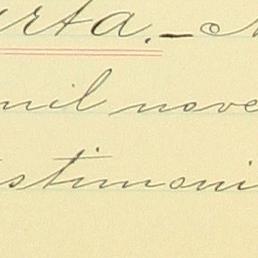 urta.-
mil nove
stimoni